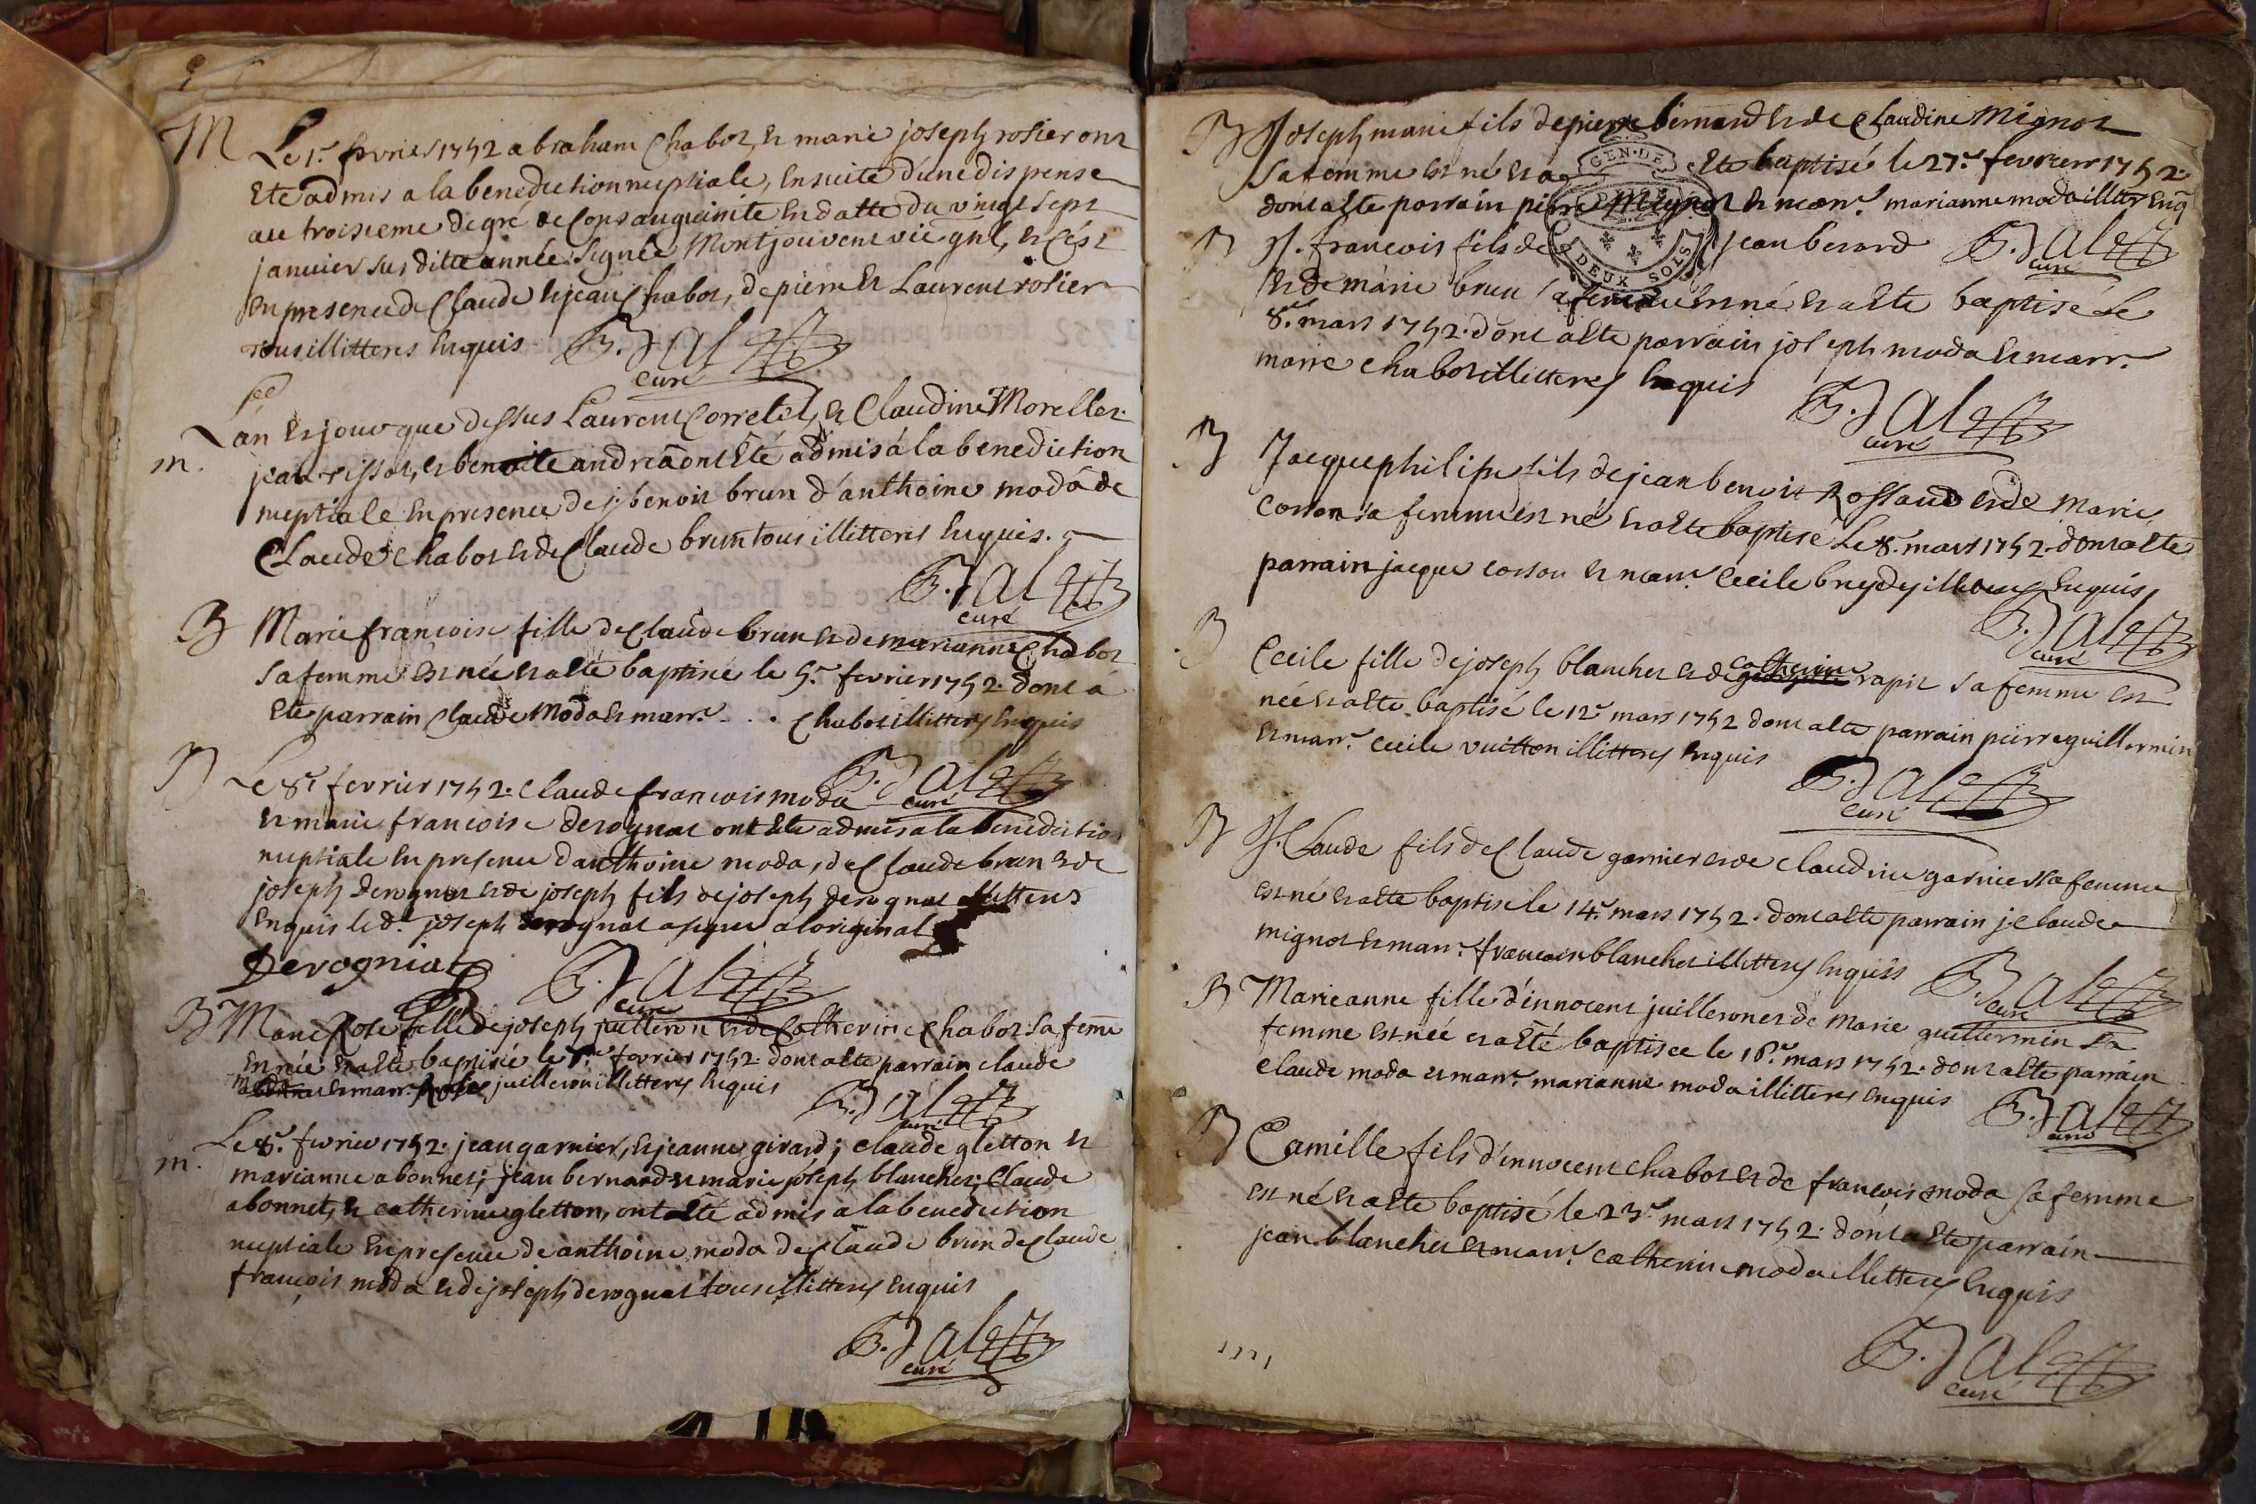 M Le 1.r fevrier 1752 abraham Chabot, et marie joseph rosier ont
Eté admis a la benediction nuptiale, ensuite d'une dispense
au troisieme degré de Consanguinité en datte du vingt sept
janvier susditte année signée Montjouvent vic gnl, et C'ést
en presence de Claude et jean Chabot, de pierre et Laurent rosier
tous illitterés Enquis B. jalez
curé
L'an et jour que dessus Laurent Corretel, et Claudine Morellet.
m. jean tissot, et benoite andréa ont Eté admis á la benediction
nuptiale en presence de j. benoit brun d'anthoine moda de
Claude Chabot et de Claude brun tous illitterés Enquis.
B. jalez
curé
B Marie francoise fille de Claude brun et de marianne Chabot
sa femme est née et a eté baptisée le 5.e fevrier 1752. dont á
eté parrain Claude Moda et marr.e . . . Chabot illitterés Enquis
B. jalez
curé
Le 8.e fevrier 1752. Claude francois moda
et marie francoise derognat ont Eté admis a la benediction
nuptiale en presence d'anthoine moda, de Claude brun et de
joseph derognat et de joseph fils de joseph derognat illitterés
Enquis led.t joseph derognat a signé a l'original
Derogniat B. jalez
curé
B Marie Rose fille de joseph juilleron et de Catherine Chabot sa feme
est née et a eté baptisée le fevrier 1752. dont a eté parrain claude
et marr.e Rose juilleron illitterés Enquis B. jalez
curé
Le 8.e fevrier 1752. jean garnier, et jeanne girard; claude gletton et
m. marianne abonnet; jean bernard et marie joseph blanchet; Claude
abonnet, et catherine gletton, ont Eté admis á la benediction
nuptiale en presence de anthoine moda de Claude brun de Claude
françois moda et de joseph derognat tous illitterés enquis
B. jalez
curé
B Joseph marie fils de pierre bernard et de Claudine Mignot
Sa femme est né et a Eté baptisé le 27.e fevrier 1752.
dont a eté parrain pierre Mignot et marr.e marianne moda illitter Enq
GEN. DE
DEUX SOLS
B J. francois fils de jean berard B. jalez
curé
et de marie brun sa femme est né et a eté baptisé Le
8.e mars 1752. dont a eté parrain joseph moda et marr.e
marie chabot illitterés Enquis
B. jalez
curé
B Jacque philipe fils de jean benoit Rossaud et de Marie
Cosson sa femme est né et a eté baptisé Le 8. mars 1752. dont a eté
parrain jacque cosson et marr.e Cecile Enquis
B. jalez
curé
B Cecile fille de joseph blanchet et de catherine rapit sa femme est
née et a eté baptisé le 12.e mars 1752 dont a eté parrain pierre guillermin
et marr.e Cecile vuitton illitterés Enquis
B. jalez
curé
B J. Claude fils de Claude garnier et de claudine garnier sa femme
est né et a eté baptisé le 14.e mars 1752. dont a eté parrain j claude
mignot et marr.e francoise blanchet illitterés Enquis
B. jalez
curé
B Marieanne fille d'innocent juilleron et de Marie guillermin sa
femme est née et a eté baptisee le 16.e mars 1752. dont a eté parrain
Claude moda et marr.e marianne moda illitterés enquis
B. jalez
curé
B Camille fils d'innocent chabot et de francoise moda sa femme
est né et a eté baptisé le 23.e mars 1752. dont a eté parrain
jean blanchet et marr.e catherine moda illitterés Enquis
B. jalez
curé